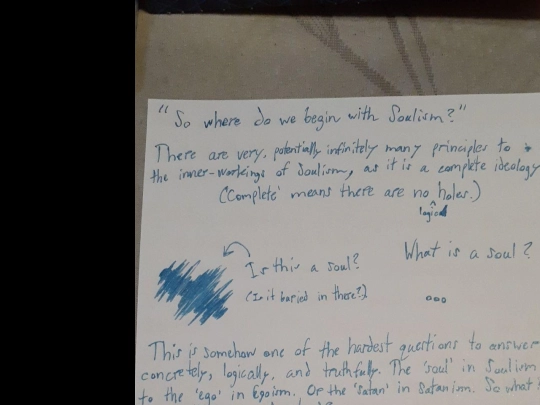 "So where do we begin with Soulism?"
There are very, potentially infinitely many principles to
the inner-workings of Soulism, as it is a complete ideology
('Complete' means there are no ^ holes.)
logical
Is this a soul?
What is a soul?
(Is it buried in there?)
...
This is somehow one of the hardest questions to answer
concretely, logically, and truthfully. The 'soul' in Soulism
to the 'ego' in Egoism. Or the 'Satan' in Satanism. So what